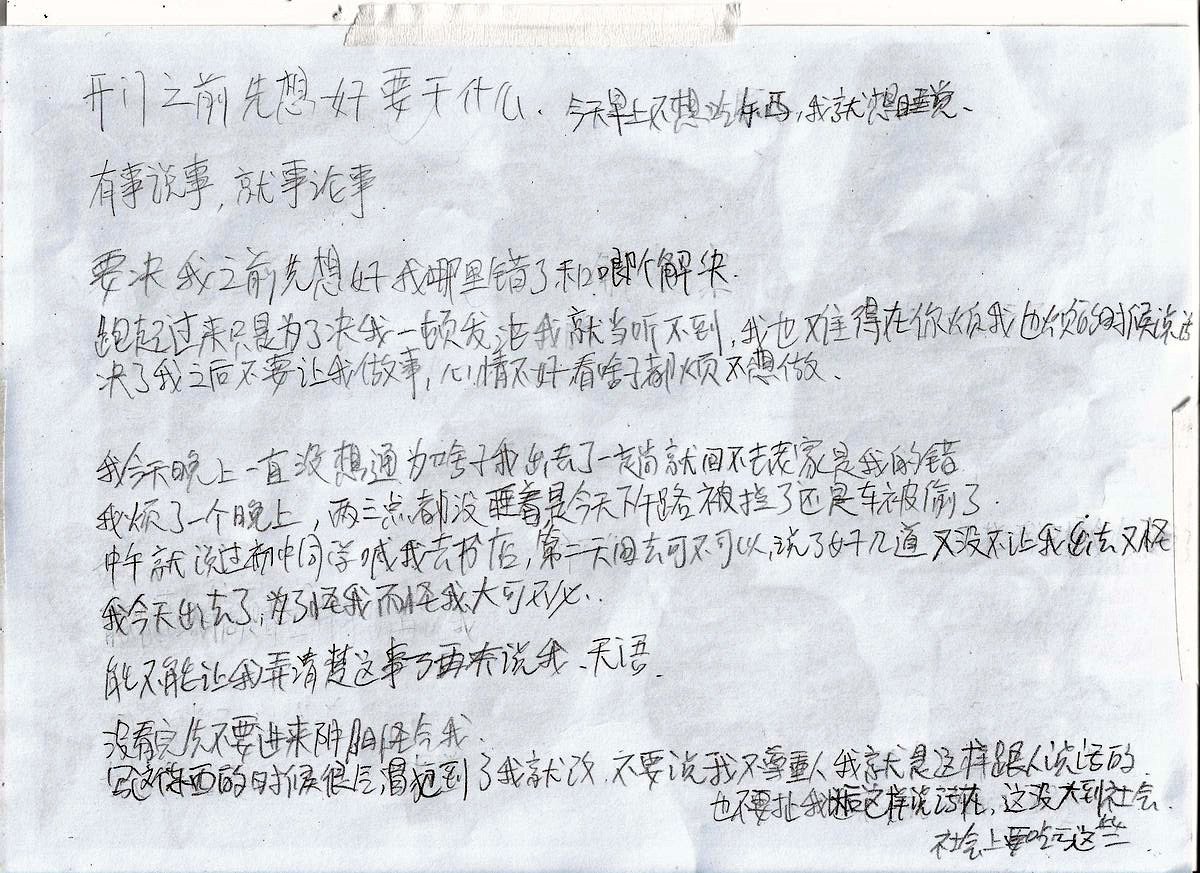 开门之前先想好要干什么. 今天早上不想吃东西,我就想睡觉、
有事说事,就事论事.
要决我之前先想好我哪里错了和啷个解决.
跑起过来只是为了决我一顿我就当听不到,我也难得在你烦我也烦的时候说话
决了我之后不要让我做事,心情不好看啥子都烦不想做、
我今天晚上一直没想通为啥子我出去了一趟就回不去老家是我的错
我烦了一个晚上,两三点都没睡着是今天下午路被挡了还是车被偷了.
中午就说过初中同学喊我去书店,第二天回去可不可以,说了好几道又没不让我出去又怪
我今天出去了,为了怪我而怪我大可不必..
能不能让我弄清楚这事了再来说我、无语.
没看完先不要进来阴阳怪气我、
写这东西的时候很气,冒犯到了我就改.不要说我不尊重人我就是这样跟人说话的.
也不要扯我以后这样说话,这没大到社会.
社会上要吃亏这些.